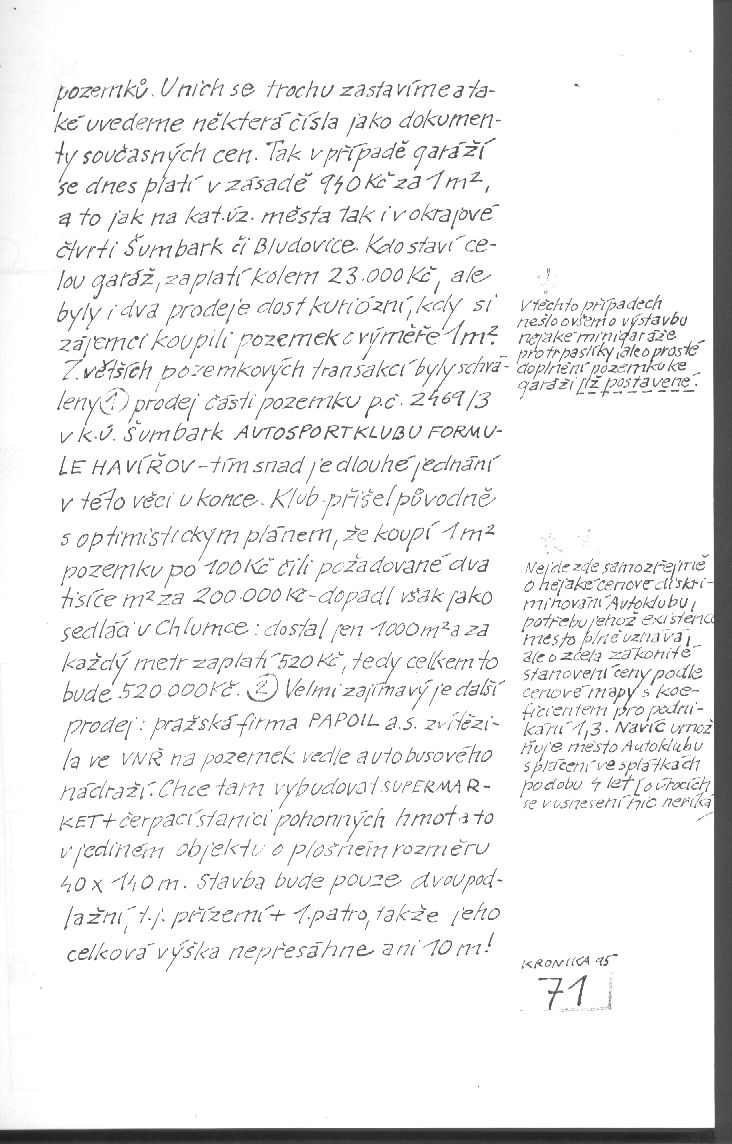 pozemků. U nich se trochu zastavíme a ta-
ké uvedeme některá čísla jako dokumen-
ty současných cen. Tak v případě garáží
se dnes platí v zásadě 940 Kč za 1 m²,
a to jak na kat. úz. města tak i v okrajové
čtvrti Šumbark či Bludovice. Kdo staví ce-
lou garáž, zaplatí kolem 23.000 Kč, ale
byly i dva prodeje dost kuriózní, kdy si
zájemci koupili pozemek o výměře 1 m².
Z větších pozemkových transakcí byly schvá-
leny ① prodej části pozemku p.č. 2469/3
v k.ú. Šumbark AUTOSPORTKLUBU FORMU-
LE HAVÍŘOV – tím snad je dlouhé jednání
v této věci u konce. Klub přišel původně
s optimistickým plánem, že koupí 1 m²
pozemku po 100 Kč čili požadované dva
tisíce m² za 200.000 Kč – dopadl však jako
sedláci u Chlumce: dostal jen 1000 m² a za
každý metr zaplatí 520 Kč, tedy celkem to
bude 520.000 Kč. ② Velmi zajímavý je další
prodej: pražská firma PAPOIL a.s. zvítězi-
la ve VNŘ na pozemek vedle autobusového
nádraží. Chce tam vybudovat SUPERMAR-
KET + čerpací stanici pohonných hmot a to
v jediném objektu o plošném rozměru
40 x 140 m. Stavba bude pouze dvoupod-
lažní, t.j. přízemí + 1. patro, takže jeho
celková výška nepřesáhne ani 10 m!
V těchto případech
nešlo ovšem o výstavbu
nějaké minigaráže
pro trpaslíky, ale o prosté
doplnění pozemku ke
garáži již postavené.
Nejde zde samozřejmě
o nějaké cenové diskri-
minování Autoklubu,
potřebu jehož existence
město plně uznává,
ale o zcela zákonité
stanovení ceny podle
cenové mapy s koe-
ficientem pro podni-
kání 1,3. Navíc umož
ňuje město Autoklubu
splácení ve splátkách
po dobu 4 let (o úrocích
se v usnesení nic neříká
KRONIKA 95
71